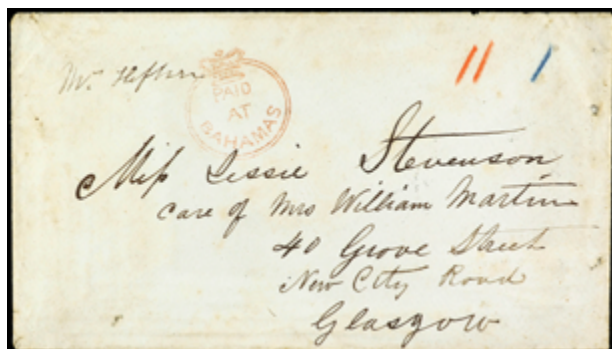 11 1
Mr.
PAID
AT
BAHAMAS
Miss Jessie Stevenson
care of Mrs William Martin
40 Grove Street
New City Road
Glasgow